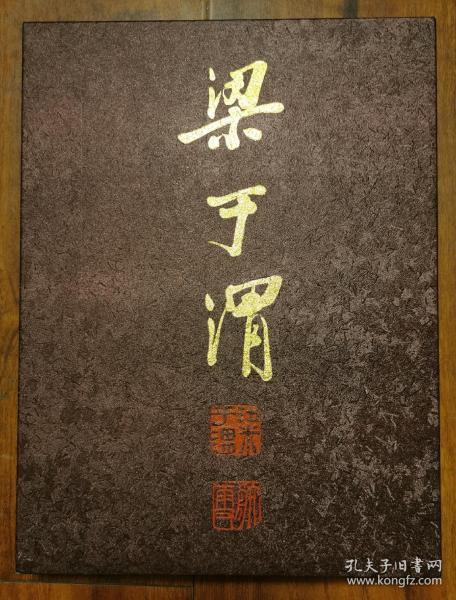 梁于渭
孔夫子旧書网
www.kongfz.com